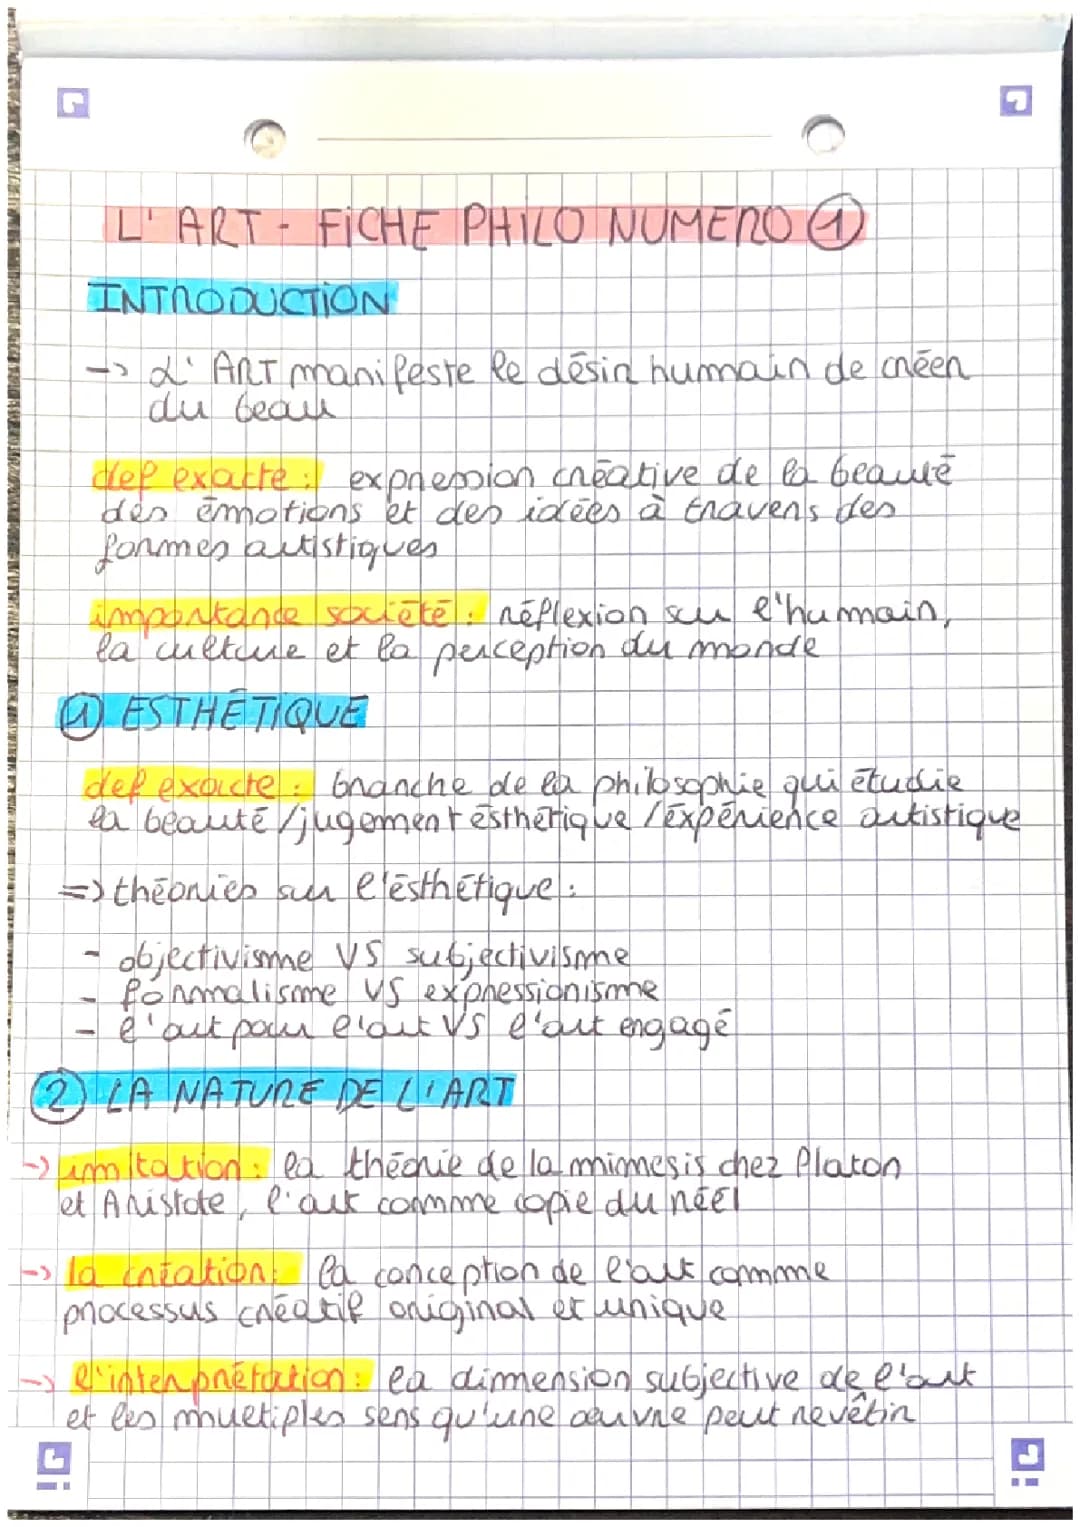 L'ART - FICHE PHILO NUMERO 1
INTRODUCTION
-> L'ART manifeste le désir humain de créer
du beau
def exacte : expression créative de la beauté
des émotions et des idées à travers des
formes artistiques
importance société : réflexion sur l'humain,
la culture et la perception du monde
1 ESTHÉTIQUE
def exacte : branche de la philosophie qui étudie
la beauté / jugement esthétique / expérience artistique
=> théories sur l'esthétique :
- objectivisme VS subjectivisme
- formalisme VS expressionisme
- l'art pour l'art VS l'art engagé
2 LA NATURE DE L'ART
-> imitation : la théorie de la mimesis chez Platon
et Aristote, l'art comme copie du réel
-> la création : la conception de l'art comme
processus créatif original et unique
-> l'interprétation : la dimension subjective de l'art
et les multiples sens qu'une œuvre peut revêtir